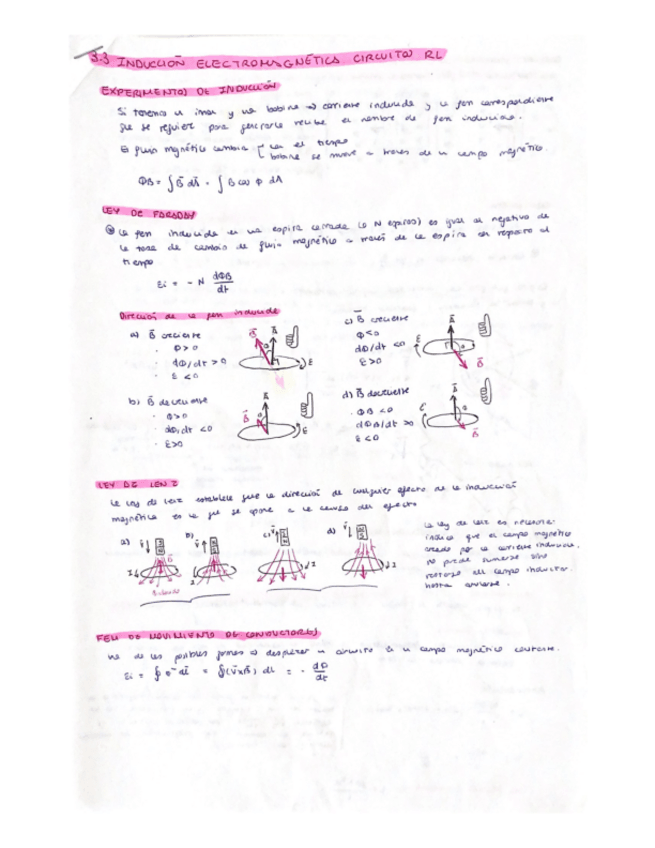 3.3 INDUCCIÓN ELECTROMAGNÉTICA CIRCUITOS RL
EXPERIMENTOS DE INDUCCIÓN
Si tenemos un iman y una bobina => corriente inducida, y la fem correspondiente
que se requiere para generarla recibe el nombre de fem inducida.
El flujo magnético cambia { con el tiempo
bobina se mueve a traves de un campo magnético.
ΦB = ∫ B⃗ dA⃗ = ∫ B cos φ dA
LEY DE FARADAY
La fem inducida en una espira cerrada (o N espiras) es igual al negativo de
la tasa de cambio de flujo magnético a través de la espira con respecto al
tiempo
Ei = - N dΦB/dt
Dirección de la fem inducida
a) B⃗ creciente
· Φ>0
· dΦ/dt > 0
· E < 0
b) B⃗ decreciente
· Φ>0
· dΦ/dt < 0
· E>0
c) B⃗ creciente
Φ<0
dΦ/dt < 0
E>0
d) B⃗ decreciente
· ΦB < 0
dΦB/dt > 0
E<0
LEY DE LENZ
La ley de Lenz establece que la dirección de cualquier efecto de la inducción
magnética es la que se opone a la causa del efecto
a) b) c) d)
La ley de Lenz es necesaria:
indica que el campo magnético
creado por la corriente inducida,
no puede sumarse sino
campo inductor.
FEM DE MOVIMIENTO DE CONDUCTORES
una de las posibles formas es desplazar un circuito en un campo magnético constante.
Ei = ∮ e⃗ dl⃗ = ∮ (v⃗xB⃗) dl = - dΦ/dt